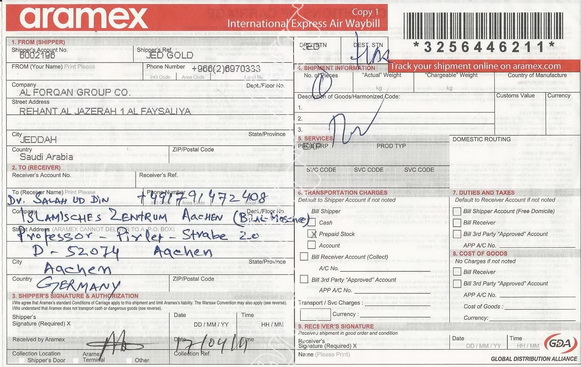 aramex
Copy 1
International Express Air Waybill
*3256446211*
Track your shipment online on aramex.com
1. FROM (SHIPPER)
Shipper's Account No.
Shipper's Ref.
B002196
JED GOLD
FROM (Your Name) Print Please
Phone Number
+966(2)6970333
Company
Dept./Floor No.
AL FORQAN GROUP CO.
Street Address
REHANT AL JAZERAH 1 AL FAYSALIYA
City
State/Province
JEDDAH
Country
ZIP/Postal Code
Saudi Arabia
2. TO (RECEIVER)
Receiver's Account No.
Receiver's Ref.
To (Receiver Name) Print
Phone Number
Dr. SALAH UD DIN +491791472408
ISLAMISCHES ZENTRUM AACHEN (BILAL MOSCHEE)
Professor - Pirlet - Strabe 20
D - 52074 Aachen
City
State/Province
Aachen
Country
ZIP/Postal Code
GERMANY
3. SHIPPER'S SIGNATURE & AUTHORIZATION
Shipper's
Signature (Required) X
Date
DD / MM / YY
Time
HH / MN
Received by Aramex
Date
17/04/11
Collection Location
Aramex
Terminal
Other
Collection Ref.
DEST. STN
4. SHIPMENT INFORMATION
No. of Pieces
"Actual" Weight
"Chargeable" Weight
Country of Manufacture
kg
kg
Description of Goods/Harmonized Code:
Customs Value
Currency
1.
2.
3.
5. SERVICES
PROD TYP
DOMESTIC ROUTING
SVC CODE
SVC CODE
SVC CODE
6. TRANSPORTATION CHARGES
Default to Shipper Account if not noted
Bill Shipper
Cash
X Prepaid Stock
Account
Bill Receiver Account (Collect)
A/C No.
Bill 3rd Party "Approved" Account
APP A/C No.
Transport / Svc Charges :
Currency :
7. DUTIES & TAXES
Default to Receiver Account if not noted
Bill Shipper Account (Free Domicile)
Bill Receiver
Bill 3rd Party "Approved" Account
APP A/C No.
8. COST OF GOODS
No Charges if not noted
Bill Receiver
Bill Shipper
APP A/C No.
Cost of Goods :
Currency :
9. RECEIVER'S SIGNATURE
Received shipment in good order and condition
Receiver's
Signature (Required) X
Name (Please Print)
Date
DD / MM / YY
Time
HH / MN
GDA
GLOBAL DISTRIBUTION ALLIANCE